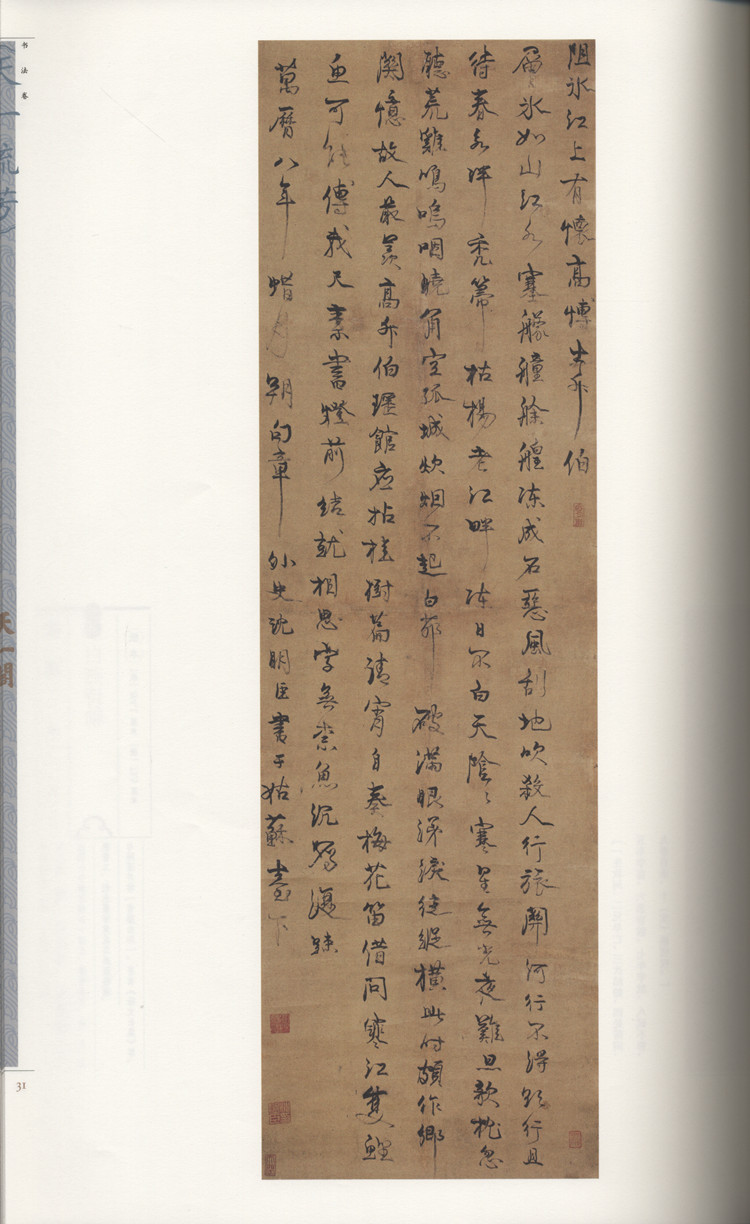 阻冰江上有懷高博士升伯
層冰如山江水塞艨艟艅艎凍成石惡風刮地吹殺人行旅關河行不得欲行且
待春水泮禿幕枯楊老江畔凍日不白天陰〻寒星無光夜難旦欹枕忽
聽荒雞鳴嗚咽曉角空孤城炊烟不起白茆破滿眼涕淚徒縱橫此時頗作鄉
關憶故人最羨高升伯瑾館應拈桂樹篇清宵自奏梅花笛借問寒江雙鯉
魚可能傳我尺素書燈前結就相思字無柰魚沉鴈復疎
萬曆八年蜡月朔句章外史沈明臣書于姑蘇臺下
書法卷
天一流芳
天一閣
31